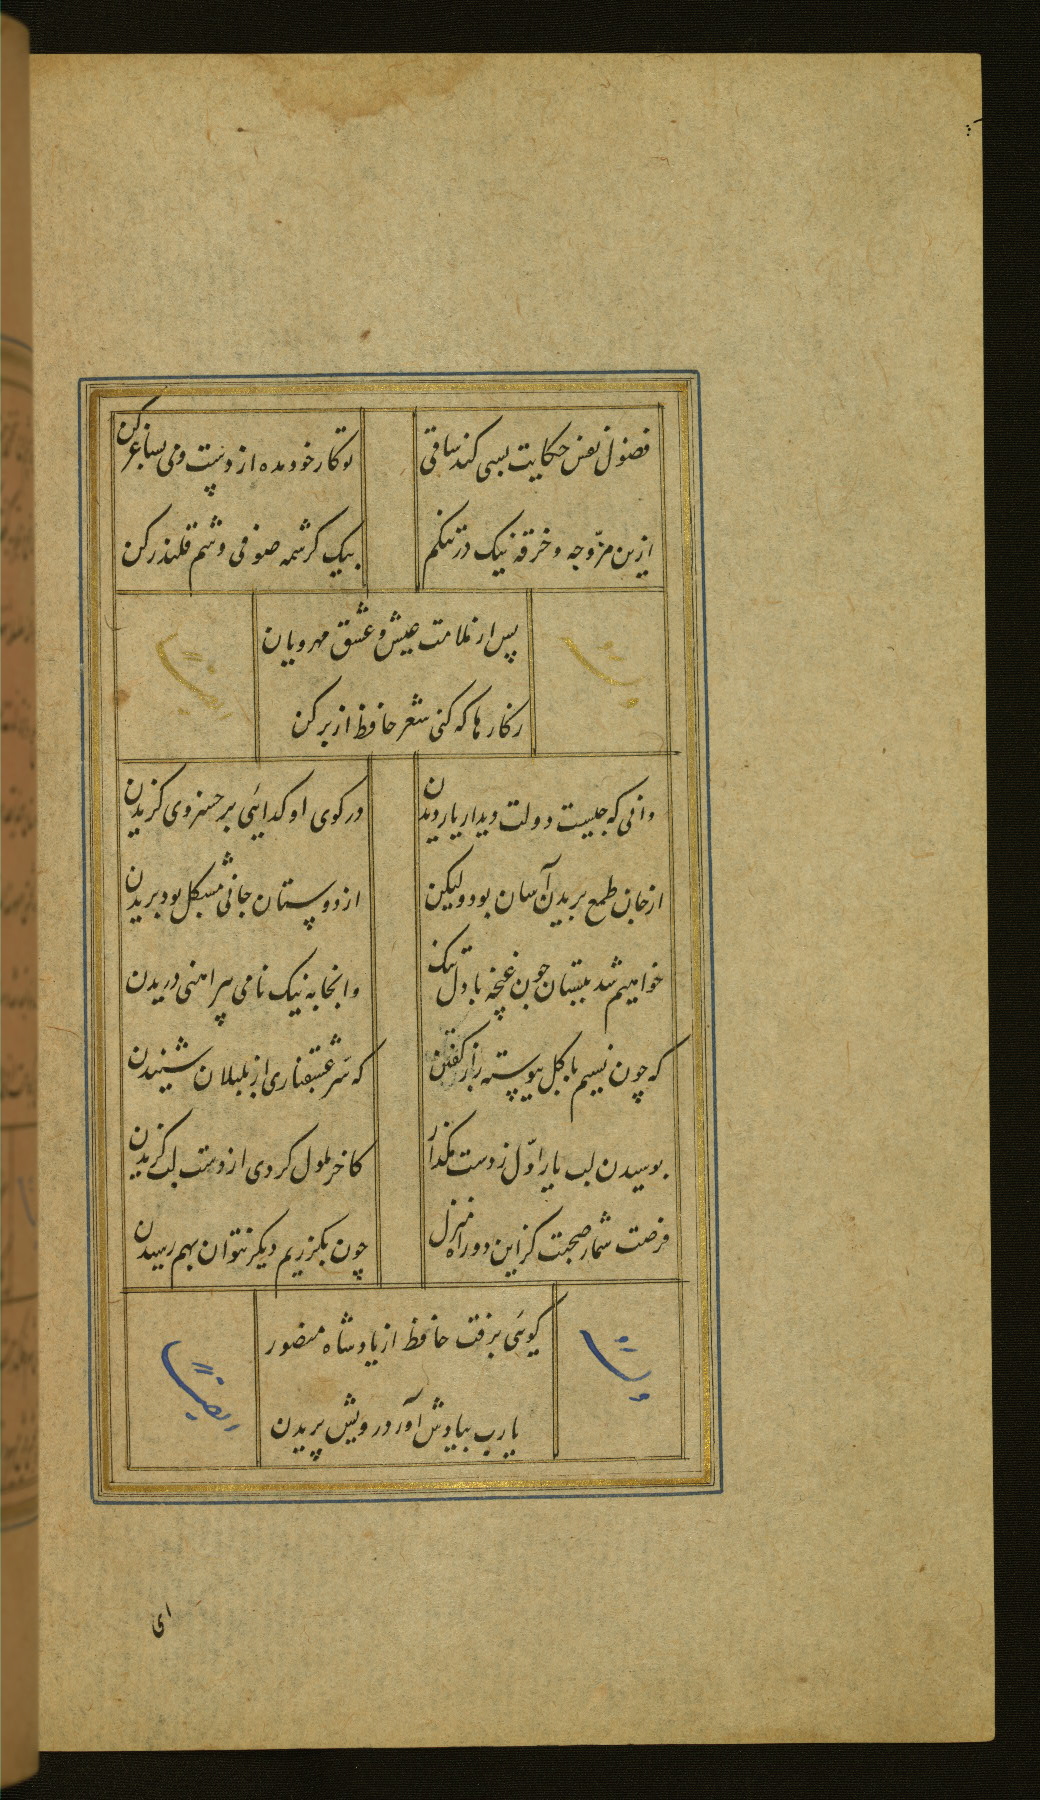 فضول نفس حکایت بسی کند ساقی
تو کار خود مده از دست و می بساغر کن
ازین مزوجه و خرقه نیک در تنکم
بیک کرشمه صوفی وشم قلندر کن
پس از ملامت عیش و عشق مهرویان
زکارها که کنی شعر حافظ از بر کن
وله
ایضا
دانی که چیست دولت دیدار یار دیدن
در کوی او کدایئی بر خسروی کزیدن
از جان طمع بریدن آسان بود ولیکن
از دوستان جانی مشکل بود بریدن
خواهیم شد ببستان چون غنچه با دل تنک
وانجا به نیک نامی پیراهنی دریدن
که چون نسیم با کل پیوسته راز کفتن
که سر عشقبازی از بلبلان شنیدن
بوسیدن لب یار اول ز دست مکذار
کاخر ملول کردی از دست لب کزیدن
فرصت شمار صحبت کز این دو راه منزل
چون بکزریم دیکر نتوان بهم رسیدن
کوئی برفت حافظ از یاد شاه منصور
یا رب بیادش آور درویش پریدن
وله
ایضا
ای